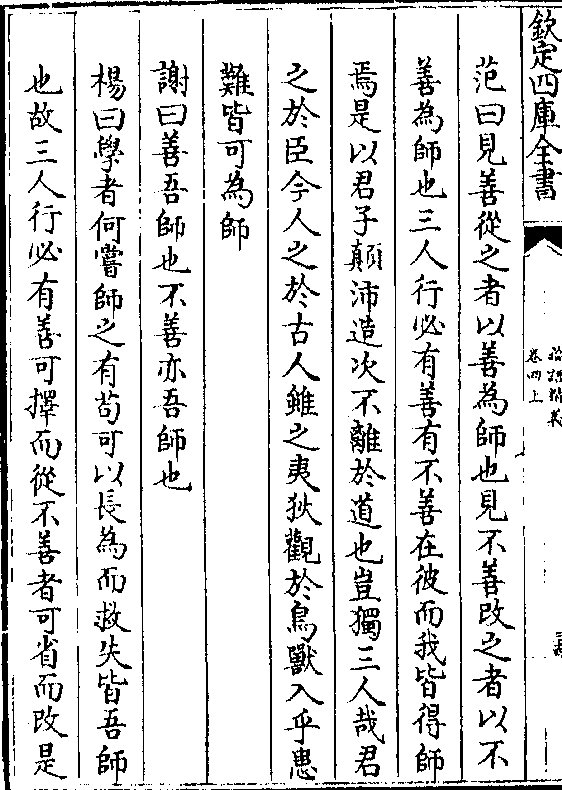 欽定四庫全書
論語精義
卷四上
范曰見善從之者以善為師也見不善改之者以不
善為師也三人行必有善有不善在彼而我皆得師
焉是以君子顛沛造次不離於道也豈獨三人哉君
之於臣今人之於古人雖之夷狄觀於鳥獸入乎患
難皆可為師
謝曰善吾師也不善亦吾師也
楊曰學者何嘗師之有苟可以長為而救失皆吾師
也故三人行必有善可擇而從不善者可省而改是